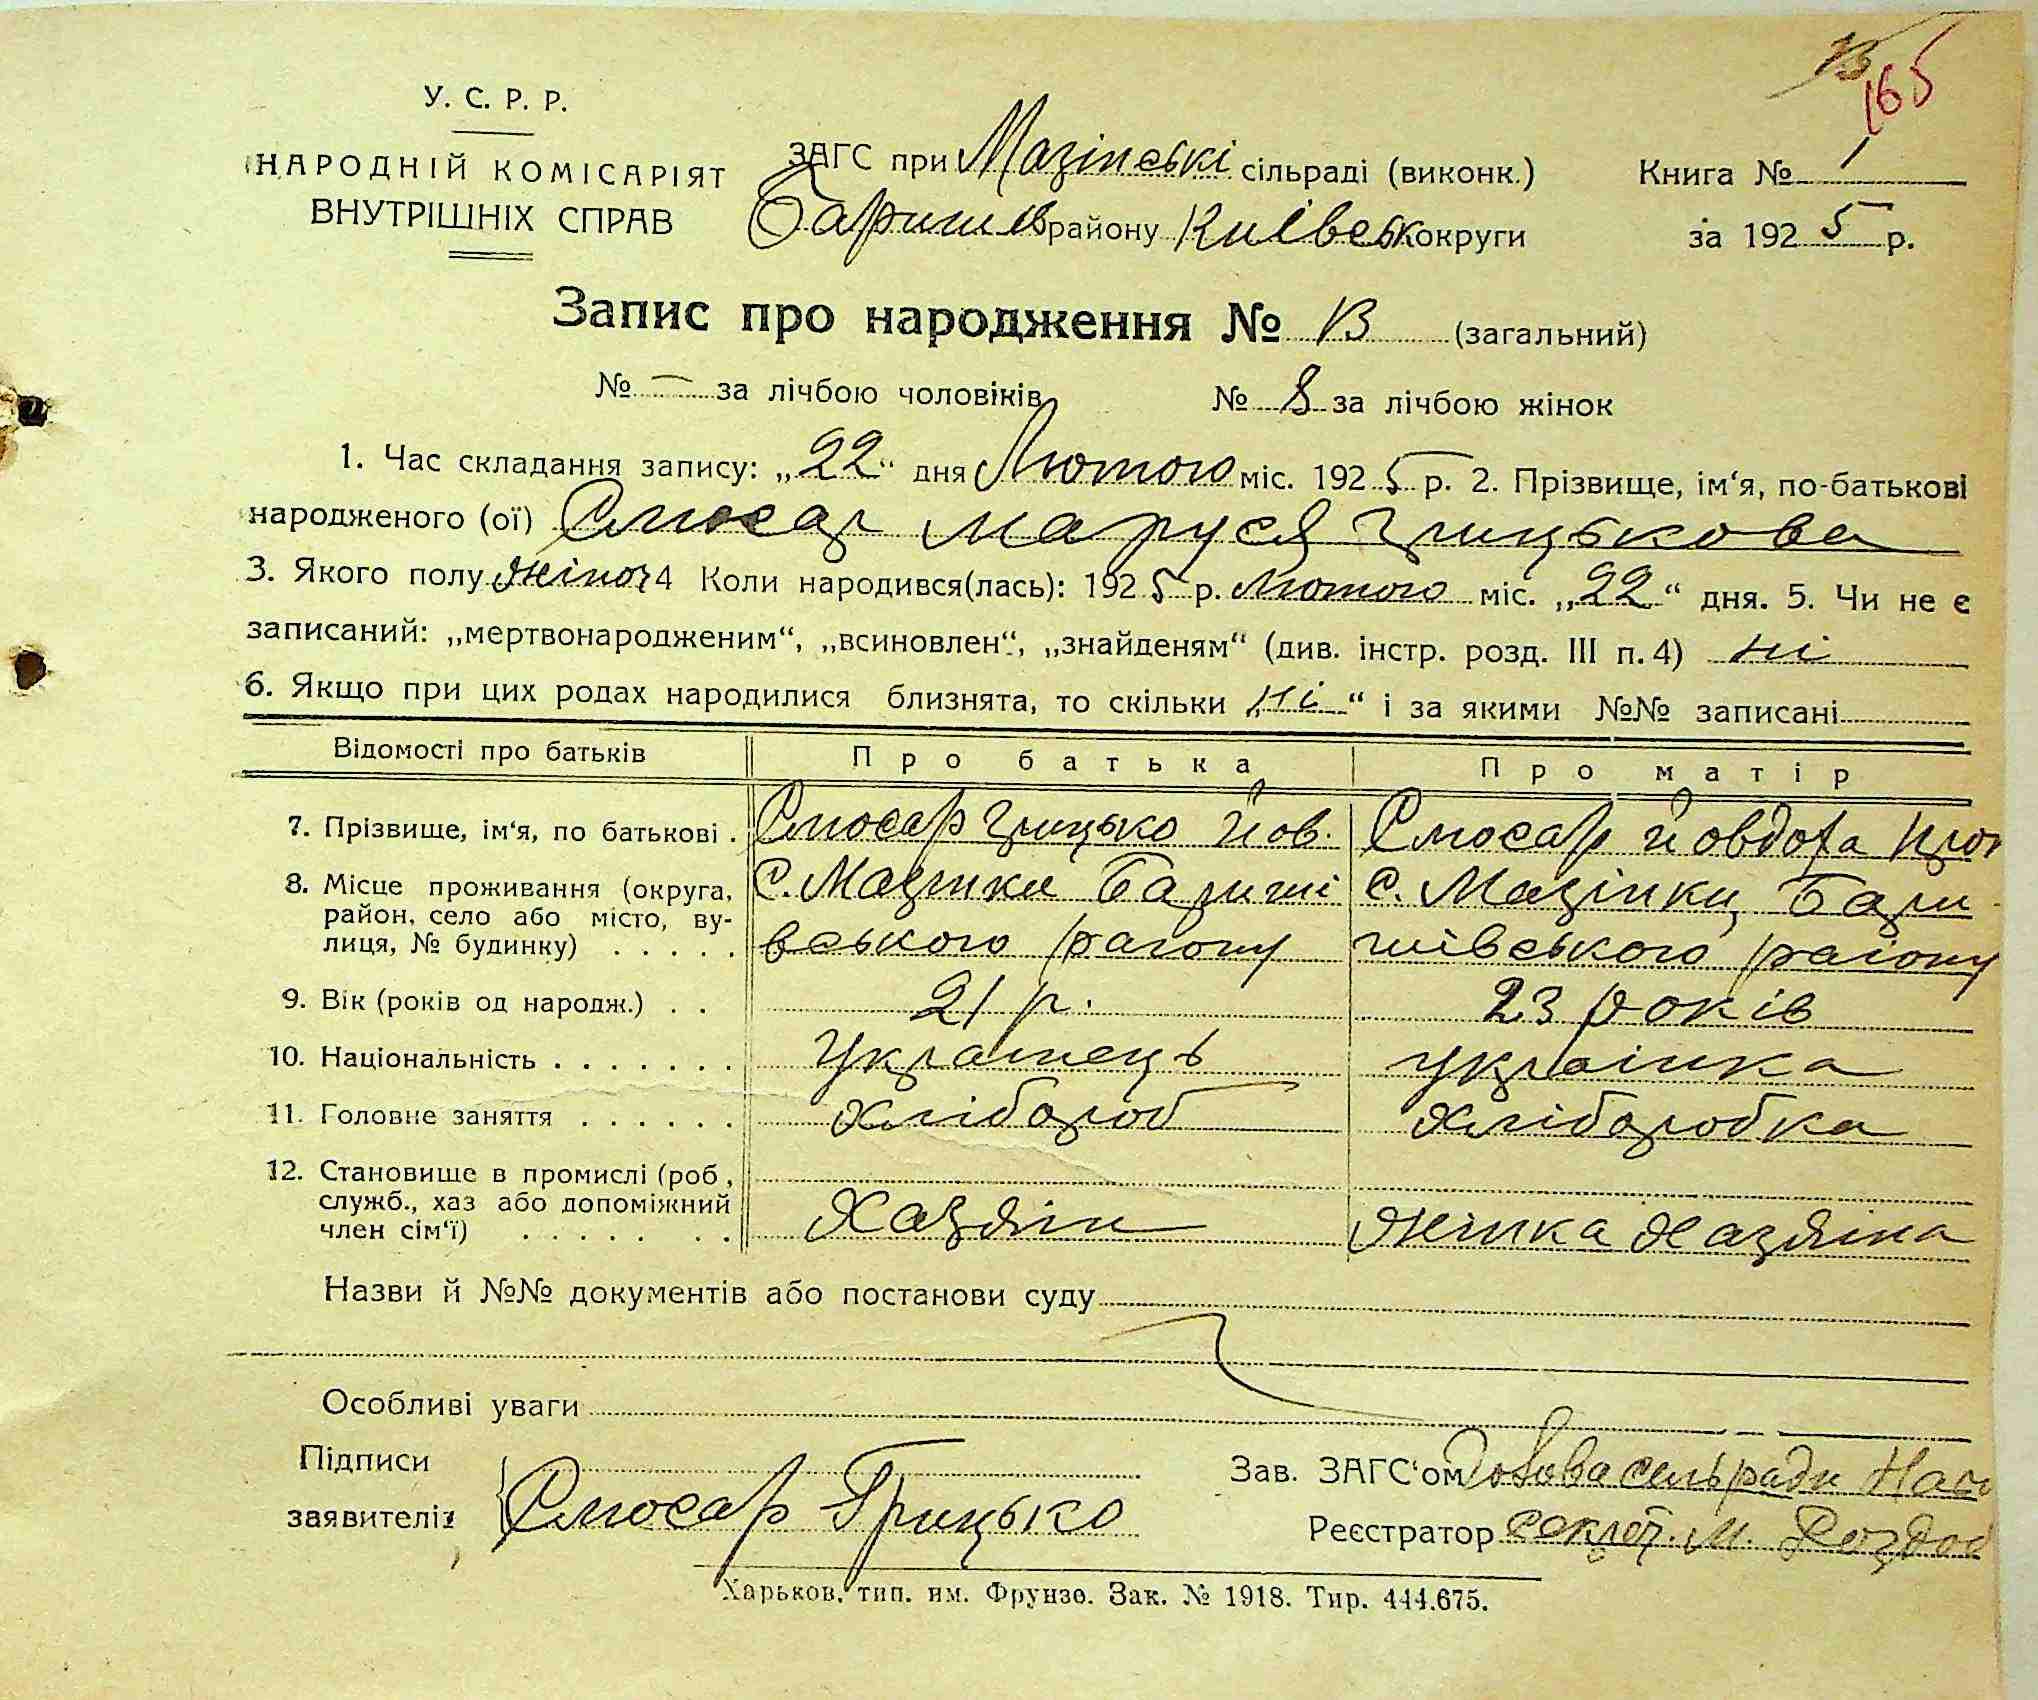 13
165
У. С. Р. Р.
НАРОДНІЙ КОМІСАРІЯТ
ВНУТРІШНІХ СПРАВ
ЗАГС при Мазінські сільраді (виконк.)
Баришів району Київськ округи
Книга № 1
за 1925 р.
Запис про народження № 13 (загальний)
№ — за лічбою чоловіків № 8 за лічбою жінок
1. Час складання запису: „22“ дня Лютого міс. 1925 р. 2. Прізвище, ім‘я, по-батькові
народженого (ої) Слюсар Маруся Грицькова
3. Якого полу жіноч 4 Коли народився(лась): 1925 р. лютого міс. „22“ дня. 5. Чи не є
записаний: „мертвонародженим“, „всиновлен“, „знайденям“ (див. інстр. розд. III п. 4) ні
6. Якщо при цих родах народилися близнята, то скільки „ні“ і за якими №№ записані
Відомості про батьків Про батька Про матір
7. Прізвище, ім‘я, по батькові . Слюсар Грицько Йов. Слюсар Йовдоха
8. Місце проживання (округа, С. Мазінки Бариші С. Мазінки, Бари
район, село або місто, ву-
лиця, № будинку) . . . . . вського району шівського району
9. Вік (років од народж.) . . 21 р. 23 років
10. Національність . . . . . . . Українець українка
11. Головне заняття . . . . . . хлібороб хліборобка
12. Становище в промислі (роб,
служб., хаз або допоміжний Хазяін Жінка Хазяіна
член сім‘ї) . . . . . . .
Назви й №№ документів або постанови суду
Особливі уваги
Підписи
заявителів Слюсар Грицько
Зав. ЗАГС‘ом Голова сельради
Реєстратор секрет. М.
Харьков. тип. им. Фрунзе. Зак. № 1918. Тир. 444.675.